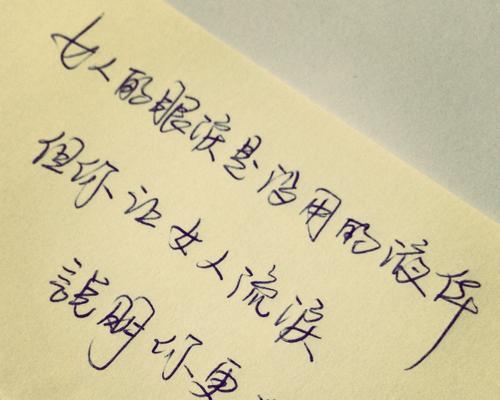 女人的眼淚是沒用的液体
但你让女人流淚
説明你更